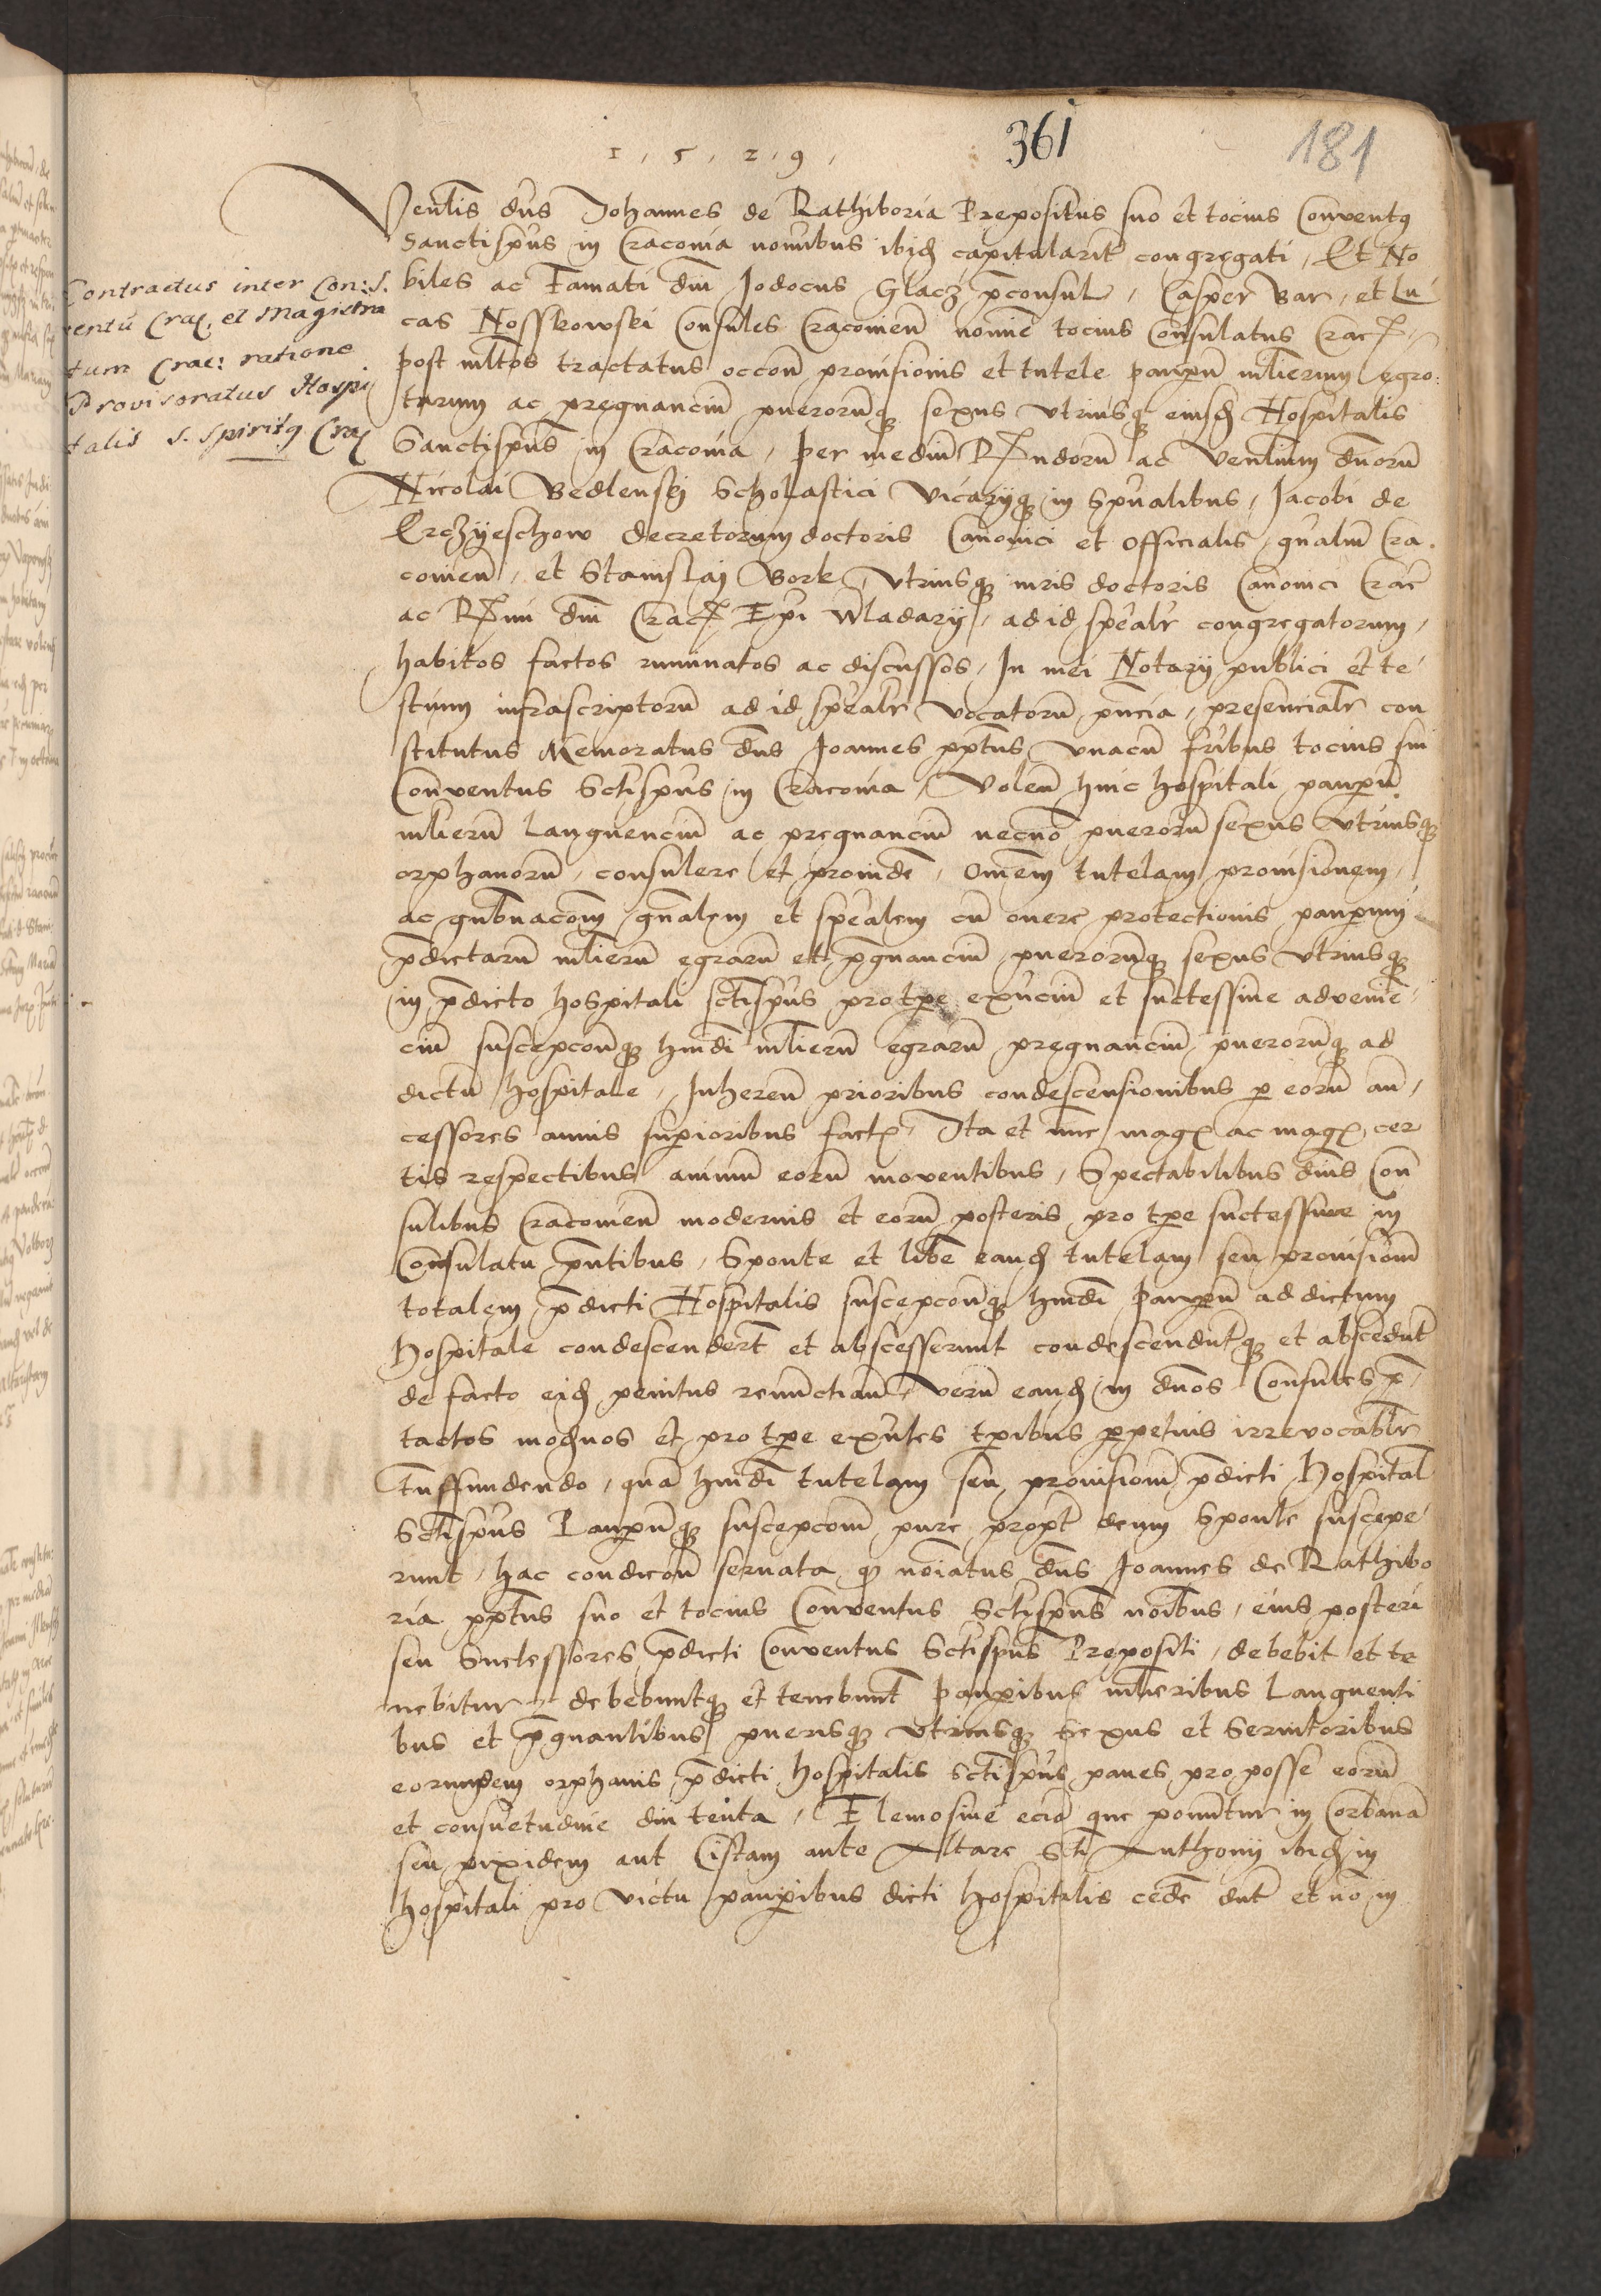 1 , 5 , 2 , 9 ,
361
181
Venlis dns Johannes de Rathiboria Prepositus suo et tocius Conventus
Sanctispus in Cracovia nominibus ibid capitularit congregati, Et No
biles ac Famati dni Jodocus Glacz pconsul, Casper Bar, et Lu
cas Nosskowski Consules Cracovien nomie tocius Consulatus Crac
post mltos tractatus occon provisionis et tutele paupum mlierum egro:
tarum ac pregnancium puerorumq sexus utriusq eiusd Hospitalis
Sanctispus in Cracovia, per medium Rndorum ac Venlium dnorum
Nicolai Bedlenski Scholastici Vicarijq in Spualibus, Jacobi de
Erczyeschow decretorum doctoris Canonici et Officialis gnalium Cra
covien, et Stanislaj Bork, utriusq iuris doctoris Canonici Crac
ac Rmi dni Crac Epi Wladarij, ad id spealr congregatorum,
habitos factos ruminatos ac discussos, In mei Notarij publici et te
stium infrascriptorum ad id spealr vocatorum pncia, presencialr con
stitutus Memoratus dns Joannes pptus unacum fribus tocius sui
Conventus Sctispus in Cracovia, Volen huic hospitali paupum
mlierum languencium ac pregnancium necno puerorum sexus utriusq
orphanorum, consulere et providе, omem tutelam provisionem,
ac gubnacom gnalem et spealem cum onere protectionis pauperum
pdictarum mlierum egrarum et pgnancium puerorumq sexus utriusq
in pdicto hospitali sctispus pro tpe exncium et successive advenie
cium suscepconq hmoi mlierum egrarum pregnancium, puerorumq ad
dictum hospitale, Inheren prioribus condescensionibus p eorum an,
cessores annis superioribus fact Ita et nunc mag ac mag, cer
tis respectibus animum eorum moventibus, Spectabilibus dnis Con
sulibus Cracovien modernis et eorum posteris pro tpe successive in
Consulatu pntibus, Sponte et libe eand tutelam seu provisionem
totalem pdicti Hospitalis suscepconq hmoi paupum ad dictum
Hospitale condescendert et abscesserunt condescenduntq et abscedunt
de facto eid penitus renuncian, verum eand in dnos Consules p,
tactos modnos et pro tpe exntes tpibus ppetuis irrevocablr
Tnsfundendo, quam hmoi tutelam seu provisionem pdicti Hospital
Sctispus Paupumq suscepcom pure propt deum Sponte suscepe
runt, hac condicon servata q noiatus dns Joannes de Rathibo
ria pptus suo et tocius Conventus Sctispus noibus, eius posteri
seu Successores pdicti Conventus Sctispus Prepositi, debebit et te
nebitur, debebuntq et tenebunt paupibus mlieribus languenti
bus et pgnantibus puerisq utriusq sexus et Servitoribus
eorumdem orphanis pdicti hospitalis Sctispus panes pro posse eorum
et consuetudine diu tenta, Elemosine ecia que ponuntur in Corbana
seu pixidem aut Cistam ante Altare Scti Anthonij ibid in
hospitali pro victu paupibus dicti hospitalis cede dnt et no in
Contractus inter Con: S.
ventu Crac. et Magistra
tum Crac: ratione
Provisoratus Hospi
talis S. Spiritq Crac